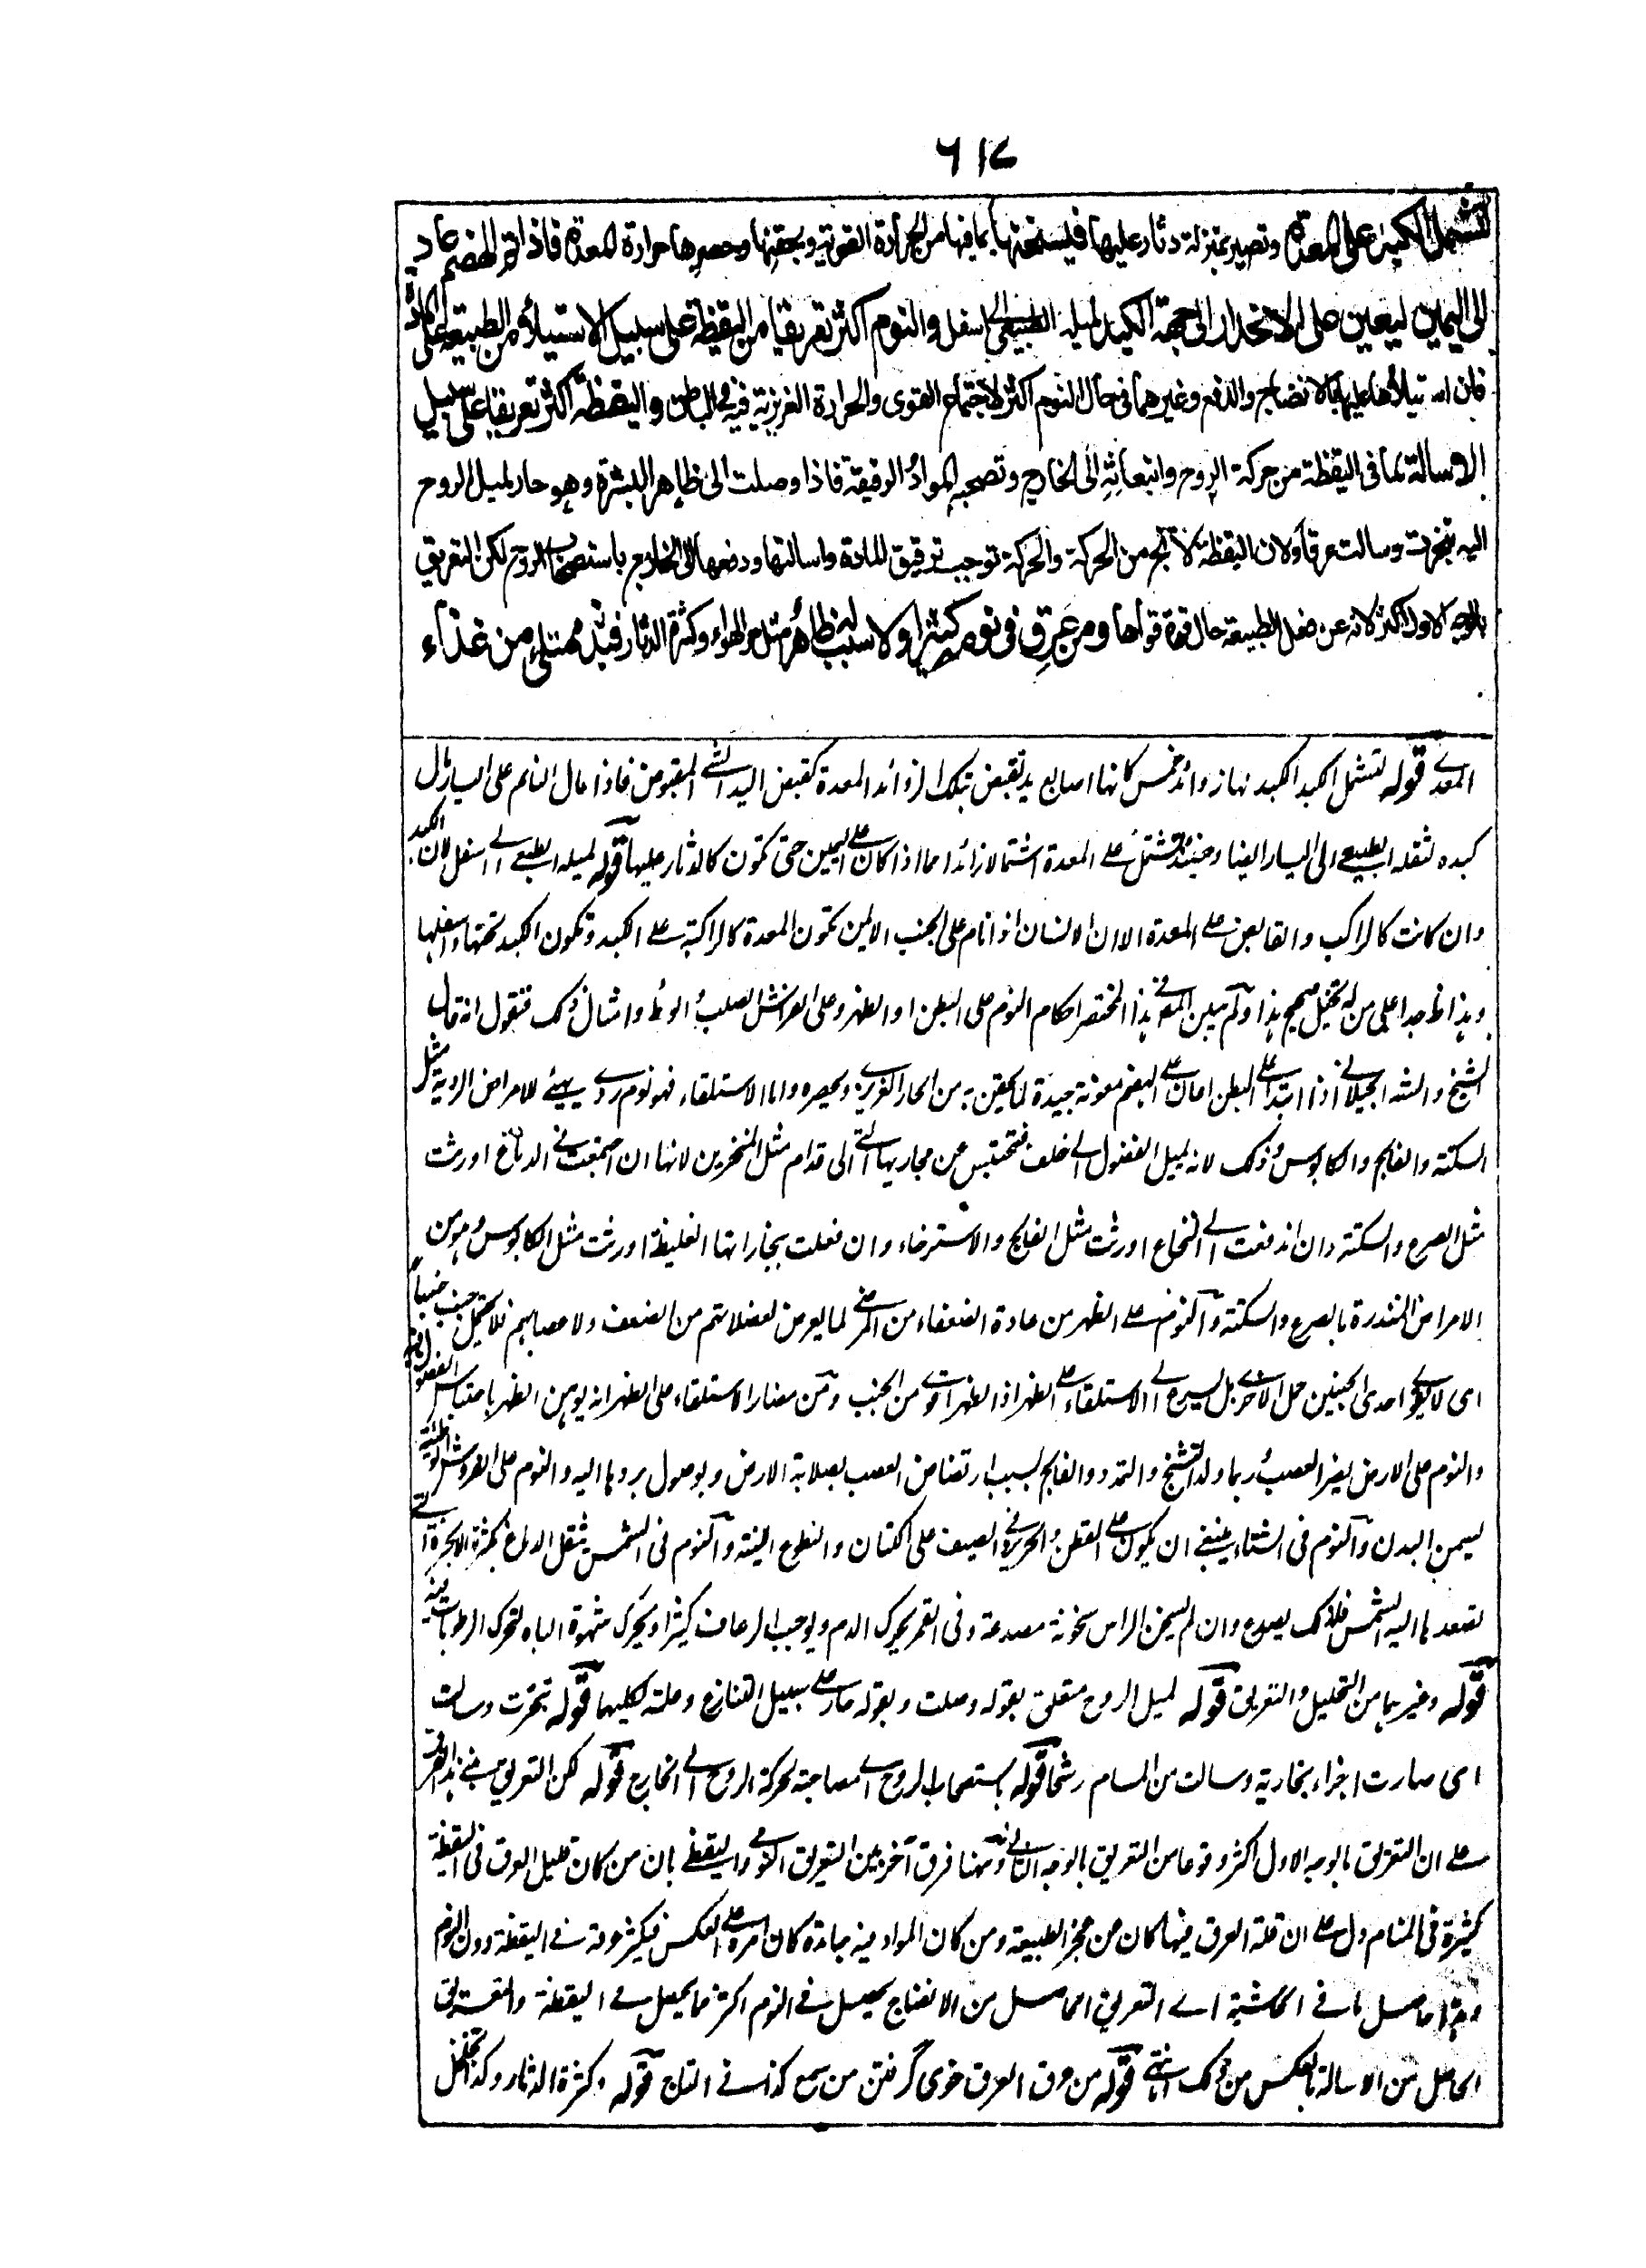 ٦١٧
لتشتمل الكبد على المعدة وتصير بمنزلة دثار عليها فيسخنها بما فيها من الحرارة القوية ويحقنها وحصرها حرارة المعدة فاذا تم الهضم عاد
الى اليمين ليعين على الانحدار الى جهة الكبد لميله الطبيعى الى اسفل والنوم اكثر تعريقا من اليقظة على سبيل الاستيلاء من الطبيعة على المادة
فان استيلاءها عليها بالانضاج والدفع وغيرهما فى حال النوم اكثر لاجتماع القوى والحرارة الغريزية فيه فى الباطن واليقظة اكثر تعريقا على سبيل
الاسالة لما فى اليقظة من حركة الروح وانبعاثه الى الخارج وتصحبه المواد الرقيقة فاذا وصلت الى ظاهر البشرة وهو حار لميل الروح
اليه تبخرت وسالت عرقا ولان اليقظة لا تخ من الحركة والحركة توجب ترقيق المادة واسالتها ودفعها الى الخارج باستصحاب الروح لكن التعريق
بالوجه الاول اكثر لانه عن فعل الطبيعة حال قوة قواها ومن عرق فى نومه كثيرا ولا سبب له ظاهر مثل حر الهواء وكثرة الدثار فبدنه ممتلئ من غذاء
المعدے قوله لتشتمل الكبد الكبد لها زوائد خمس كانها اصابع يد تقبض بتلك الزوائد المعدة كقبض اليد الشے المقبوض فاذا مال النائم على اليسار مال
كبده لثقله الطبيعے الى اليسار ايضا وحينئذ تشتمل علے المعدة اشتمالا زائدا مما اذا كان علے اليمين حتى تكون كالدثار عليها قوله لميله الطبعے الے اسفل لان الكبد
وان كانت كالراكب والقابض علے المعدة الا ان الانسان اذا نام على الجنب الايمن تكون المعدة كالراكبة علے الكبد وتكون الكبد تحتها واسفلها
وهذا ظ جدا على من له تخيل صحيح هذا ولم يبين المصنف فے هذا المختصر احكام النوم على البطن او الظهر وعلى الفراش الصلب او الوطئ وامثال ذلك فنقول انه قال
الشيخ والشه الجيلانے اذا ابتدأ علے البطن اعان علے الهضم معونة جيدة لما يحقن به من الحار الغريزے ويحصره واما الاستلقاء فهو نوم ردے يهيئ للامراض الردية مثل
السكتة والفالج والكابوس وذلك لانه يميل الفضول الے خلف فتحتبس عن مجاريها التے الى قدام مثل المنخرين لانها ان اجتمعت فے الدماغ اورثت
مثل الصرع والسكتة وان اندفعت الے النخاع اورثت مثل الفالج والاسترخاء وان فعلت بخاراتها الغليظة اورثت مثل الكابوس وهو من
الامراض المنذرة بالصرع والسكتة والنوم علے الظهر من عادة الضعفاء من المرضے لما يعرض لعضلاتهم من الضعف ولاعصابهم فلا يحمل جنب جنبا
اى لا يقوے احدى الجنبين حمل الاخرے بل يسرع الے الاستلقاء علے الظهر اذ الظهر اقوے من الجنب ومن مضار الاستلقاء على الظهر انه يوهن الظهر باحتباس الفضول فيه
والنوم على الارض يضر العصب وربما ولد التشنج والتمدد والفالج بسبب ارتضاض العصب بصلابة الارض وبوصول بردها اليه والنوم على الفروش الوطئة
يسمن البدن والنوم فى الشتاء ينبغے ان يكون علے القطن والحرير وفے الصيف على الكتان والنطوع اللينة والنوم فى الشمس يثقل الدماغ بكثرة الابخرة التے
تصعدها اليه الشمس فلذلك يصدع وان لم يسخن الراس سخونة مصدعة وفى القمر يحرك الدم ويوجب الرعاف كثيرا ويحرك شهوة الباه لتحرك الرطوبات فيه
قوله وغيرهما من التحليل والتفريق قوله لميل الروح متعلق بقوله وصلت وبقوله حار علے سبيل التنازع وعلة لكليهما قوله تبخرت وسالت
اى صارت اجزاء بخارية وسالت من المسام رشحا قوله باستصحاب الروح اے مصاحبة لحركة الروح الے الخارج قوله لكن التعريق مبنے هذا الفرق
علے ان التعريق بالوجه الاول اكثر وقوعا من التعريق بالوجه الثانے وههنا فرق آخر بين التعريق النومے واليقظے بان من كان قليل العرق فى اليقظة
كثيرة فى المنام دل علے ان قلة العرق فيها كان من عجز الطبيعة ومن كان المواد فيه جامدة كان امره علے العكس فيكثر عرقه فے اليقظة دون النوم
وهذا حاصل ما فے الحاشية اے التعريق الحاصل من الانضاج يحصل فے النوم اكثر مما يحصل فے اليقظة والتعريق
الحاصل من الاسالة بالعكس من ذلك انتهے قوله من عرق العرق خوى گرفتن من سمع كذا فے التاج قوله وكثرة الدثار وكذا تخلخل